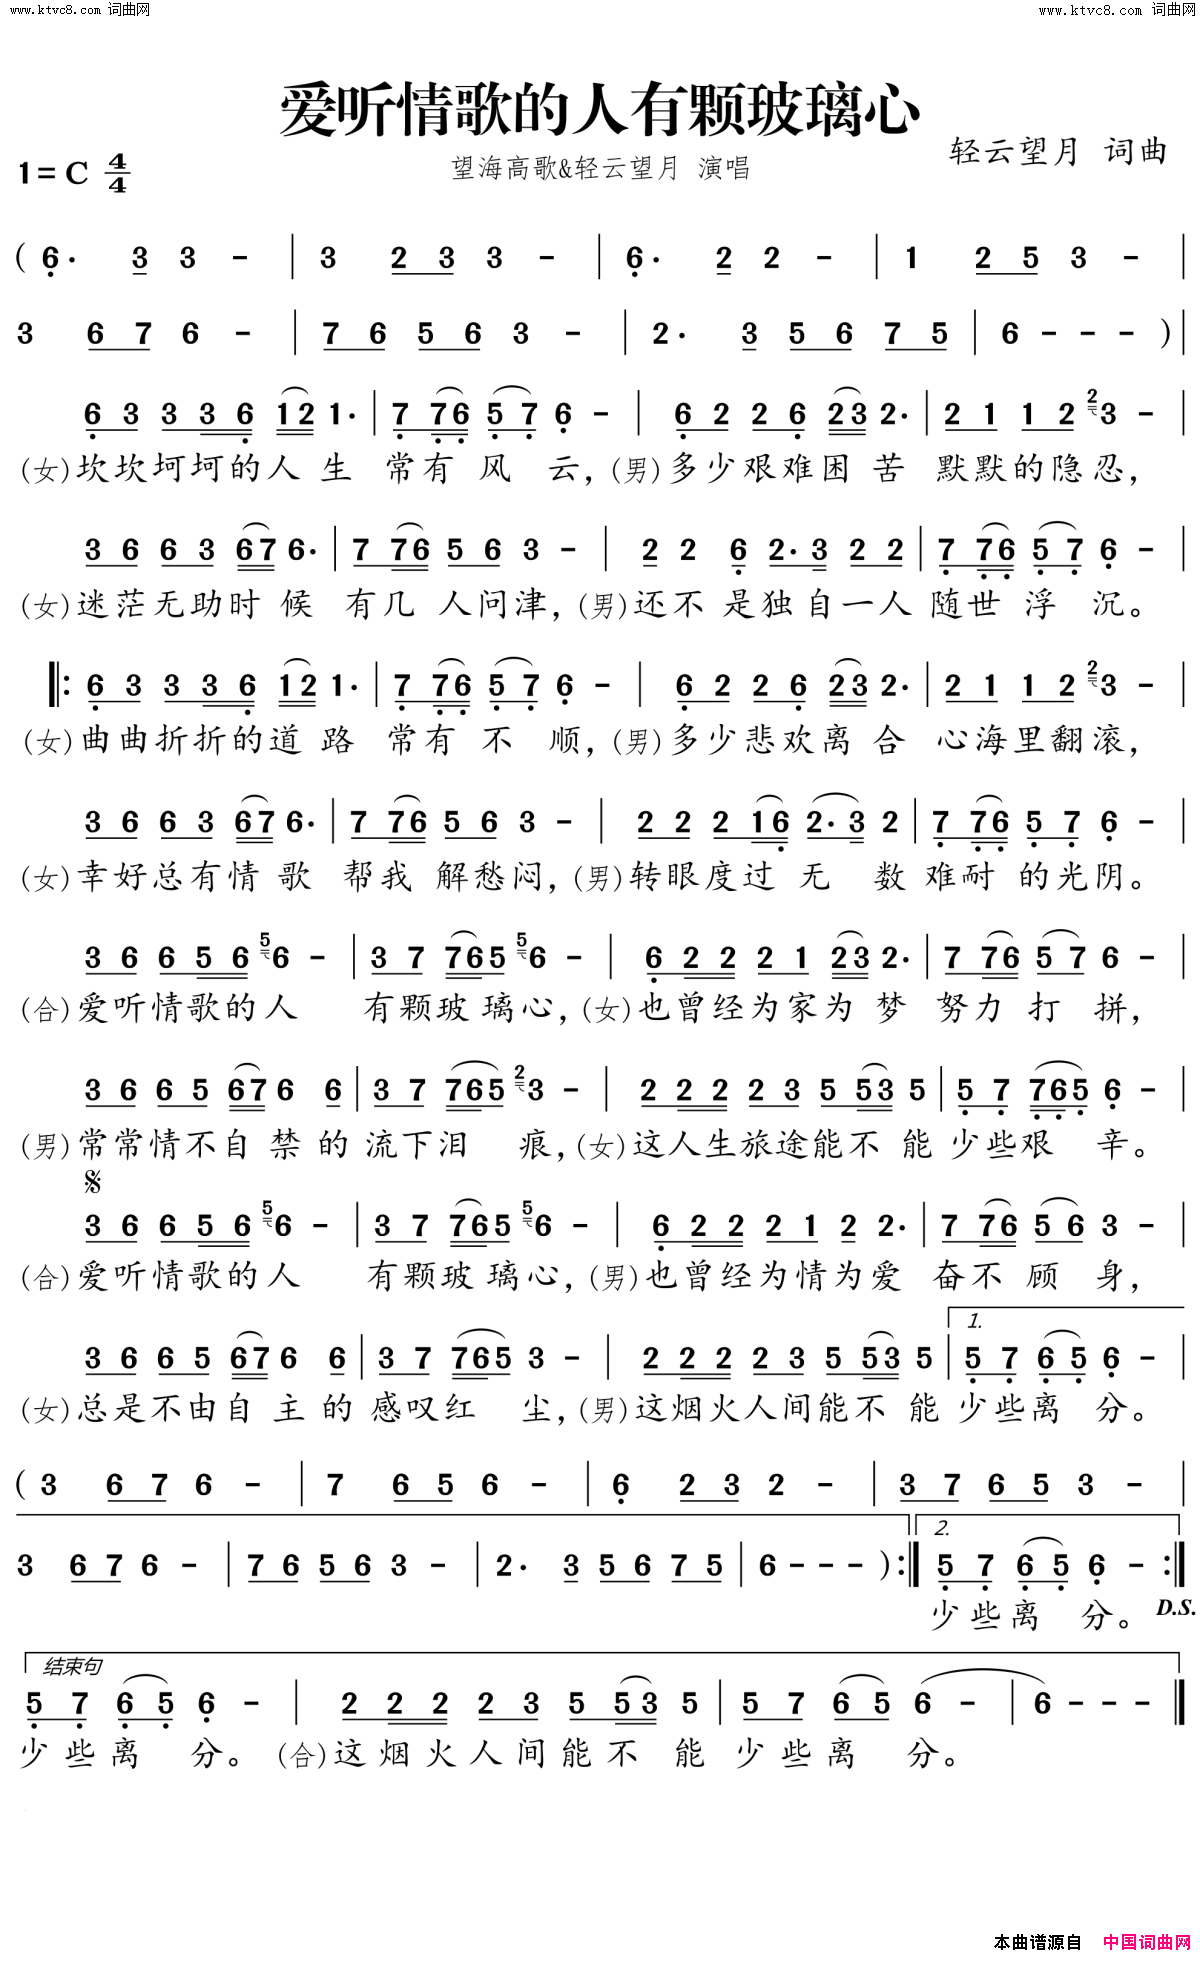 www.ktvc8.com 词曲网 www.ktvc8.com 词曲网
爱听情歌的人有颗玻璃心
1=C 4/4 望海高歌&轻云望月 演唱 轻云望月 词曲
( 6· 3 3 - | 3 2 3 3 - | 6· 2 2 - | 1 2 5 3 - |
3 6 7 6 - | 7 6 5 6 3 - | 2· 3 5 6 7 5 | 6 - - - ) |
6 3 3 3 6 1 2 1· | 7 7 6 5 7 6 - | 6 2 2 6 2 3 2· | 2 1 1 2 2 3 - |
(女)坎坎坷坷的人 生 常有 风 云,(男)多少艰难困 苦 默默的隐忍,
3 6 6 3 6 7 6· | 7 7 6 5 6 3 - | 2 2 6 2· 3 2 2 | 7 7 6 5 7 6 - |
(女)迷茫无助时 候 有几 人问津,(男)还不 是独自一人 随世 浮 沉。
6 3 3 3 6 1 2 1· | 7 7 6 5 7 6 - | 6 2 2 6 2 3 2· | 2 1 1 2 2 3 - |
(女)曲曲折折的道 路 常有 不 顺,(男)多少悲欢离 合 心海里翻滚,
3 6 6 3 6 7 6· | 7 7 6 5 6 3 - | 2 2 2 1 6 2· 3 2 | 7 7 6 5 7 6 - |
(女)幸好总有情 歌 帮我 解愁闷,(男)转眼度过 无 数 难耐 的光阴。
3 6 6 5 6 5 6 - | 3 7 7 6 5 5 6 - | 6 2 2 2 1 2 3 2· | 7 7 6 5 7 6 - |
(合)爱听情歌的人 有颗玻 璃心,(女)也曾经为家为 梦 努力 打 拼,
3 6 6 5 6 7 6 6 | 3 7 7 6 5 2 3 - | 2 2 2 2 3 5 5 3 5 | 5 7 7 6 5 6 - |
(男)常常情不自 禁 的 流下泪 痕,(女)这人生旅途能不 能 少些艰 辛。
3 6 6 5 6 5 6 - | 3 7 7 6 5 5 6 - | 6 2 2 2 1 2 2· | 7 7 6 5 6 3 - |
(合)爱听情歌的人 有颗玻 璃心,(男)也曾经为情为爱 奋不 顾 身,
1.
3 6 6 5 6 7 6 6 | 3 7 7 6 5 3 - | 2 2 2 2 3 5 5 3 5 | 5 7 6 5 6 - |
(女)总是不由自 主 的 感叹红 尘,(男)这烟火人间能不 能 少些离 分。
( 3 6 7 6 - | 7 6 5 6 - | 6 2 3 2 - | 3 7 6 5 3 - |
2.
3 6 7 6 - | 7 6 5 6 3 - | 2· 3 5 6 7 5 | 6 - - - ) :| 5 7 6 5 6 - :|
少些离 分。 D.S.
结束句
5 7 6 5 6 - | 2 2 2 2 3 5 5 3 5 | 5 7 6 5 6 - | 6 - - - |
少些离 分。 (合)这烟火人间能不 能 少些离 分。
本曲谱源自 中国词曲网